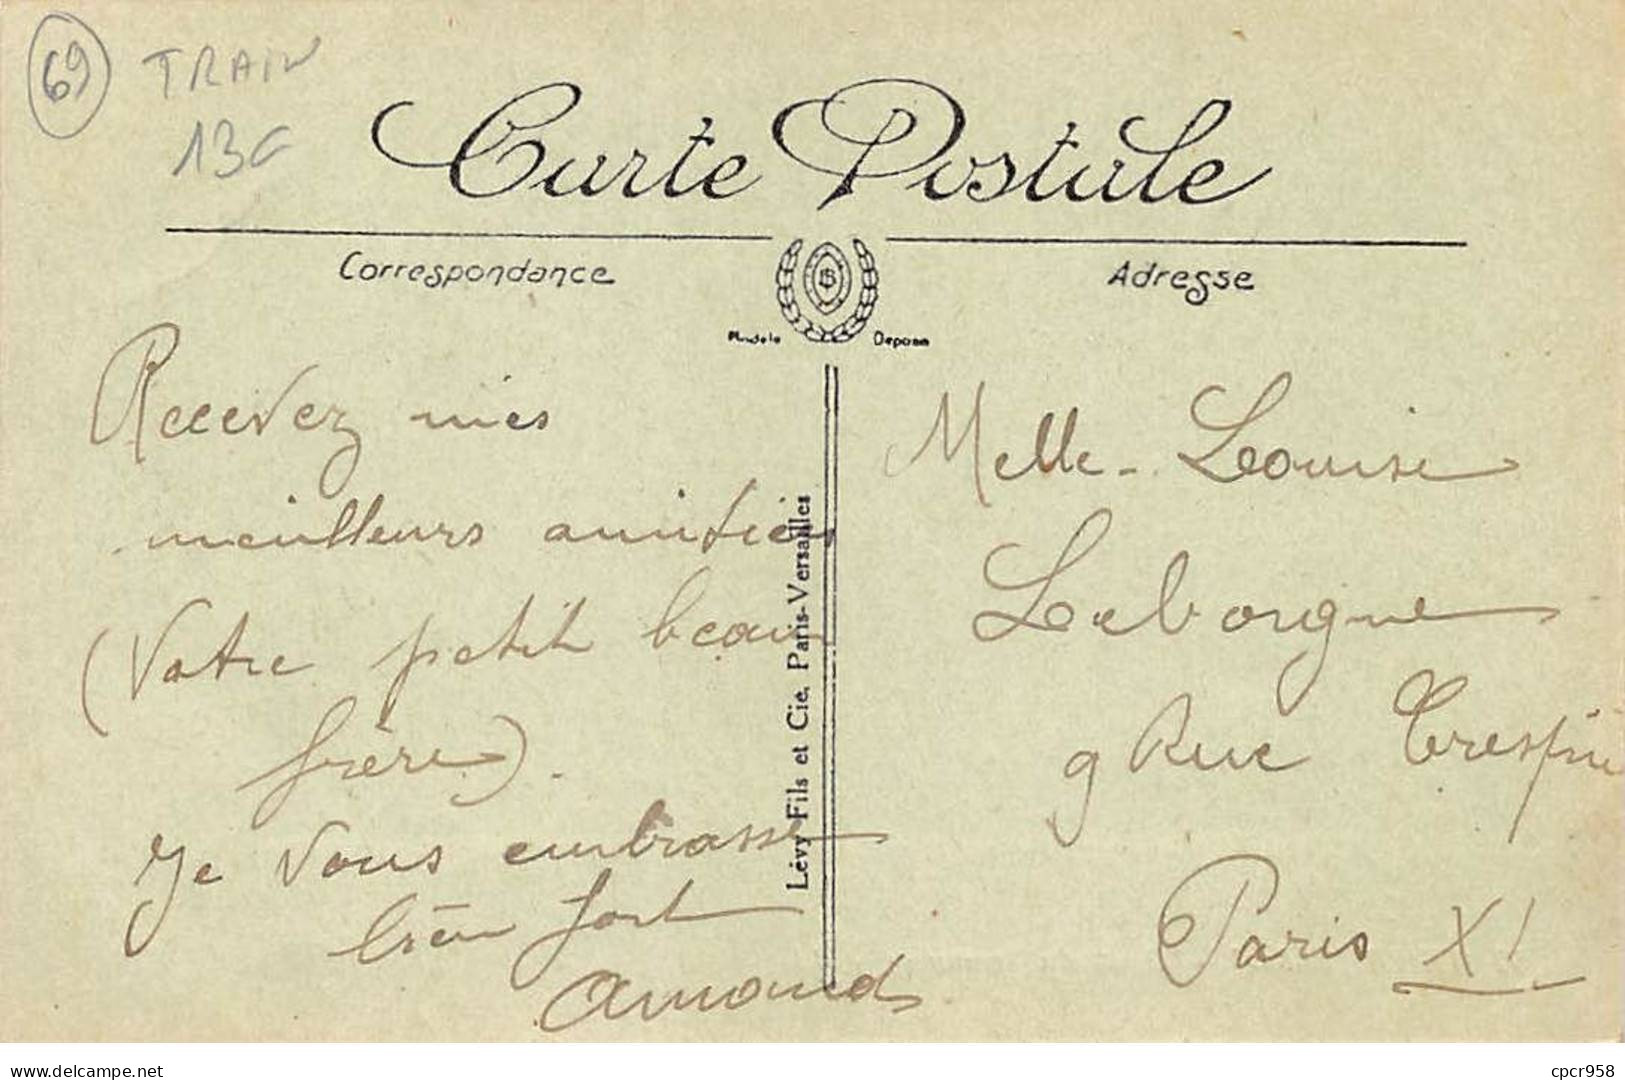 69 TRAIN
13C
Carte Postale
Correspondance
Adresse
LS
Modèle Déposé
Recevez mes
meilleurs amitiés
(Votre petit beau
frère).
Je vous embrasse
bien fort
Armand
Lévy Fils et Cie, Paris-Versailles
Melle - Louise
Leborgne
9 Rue Crespin
Paris XI
www.delcampe.net
cpcr958